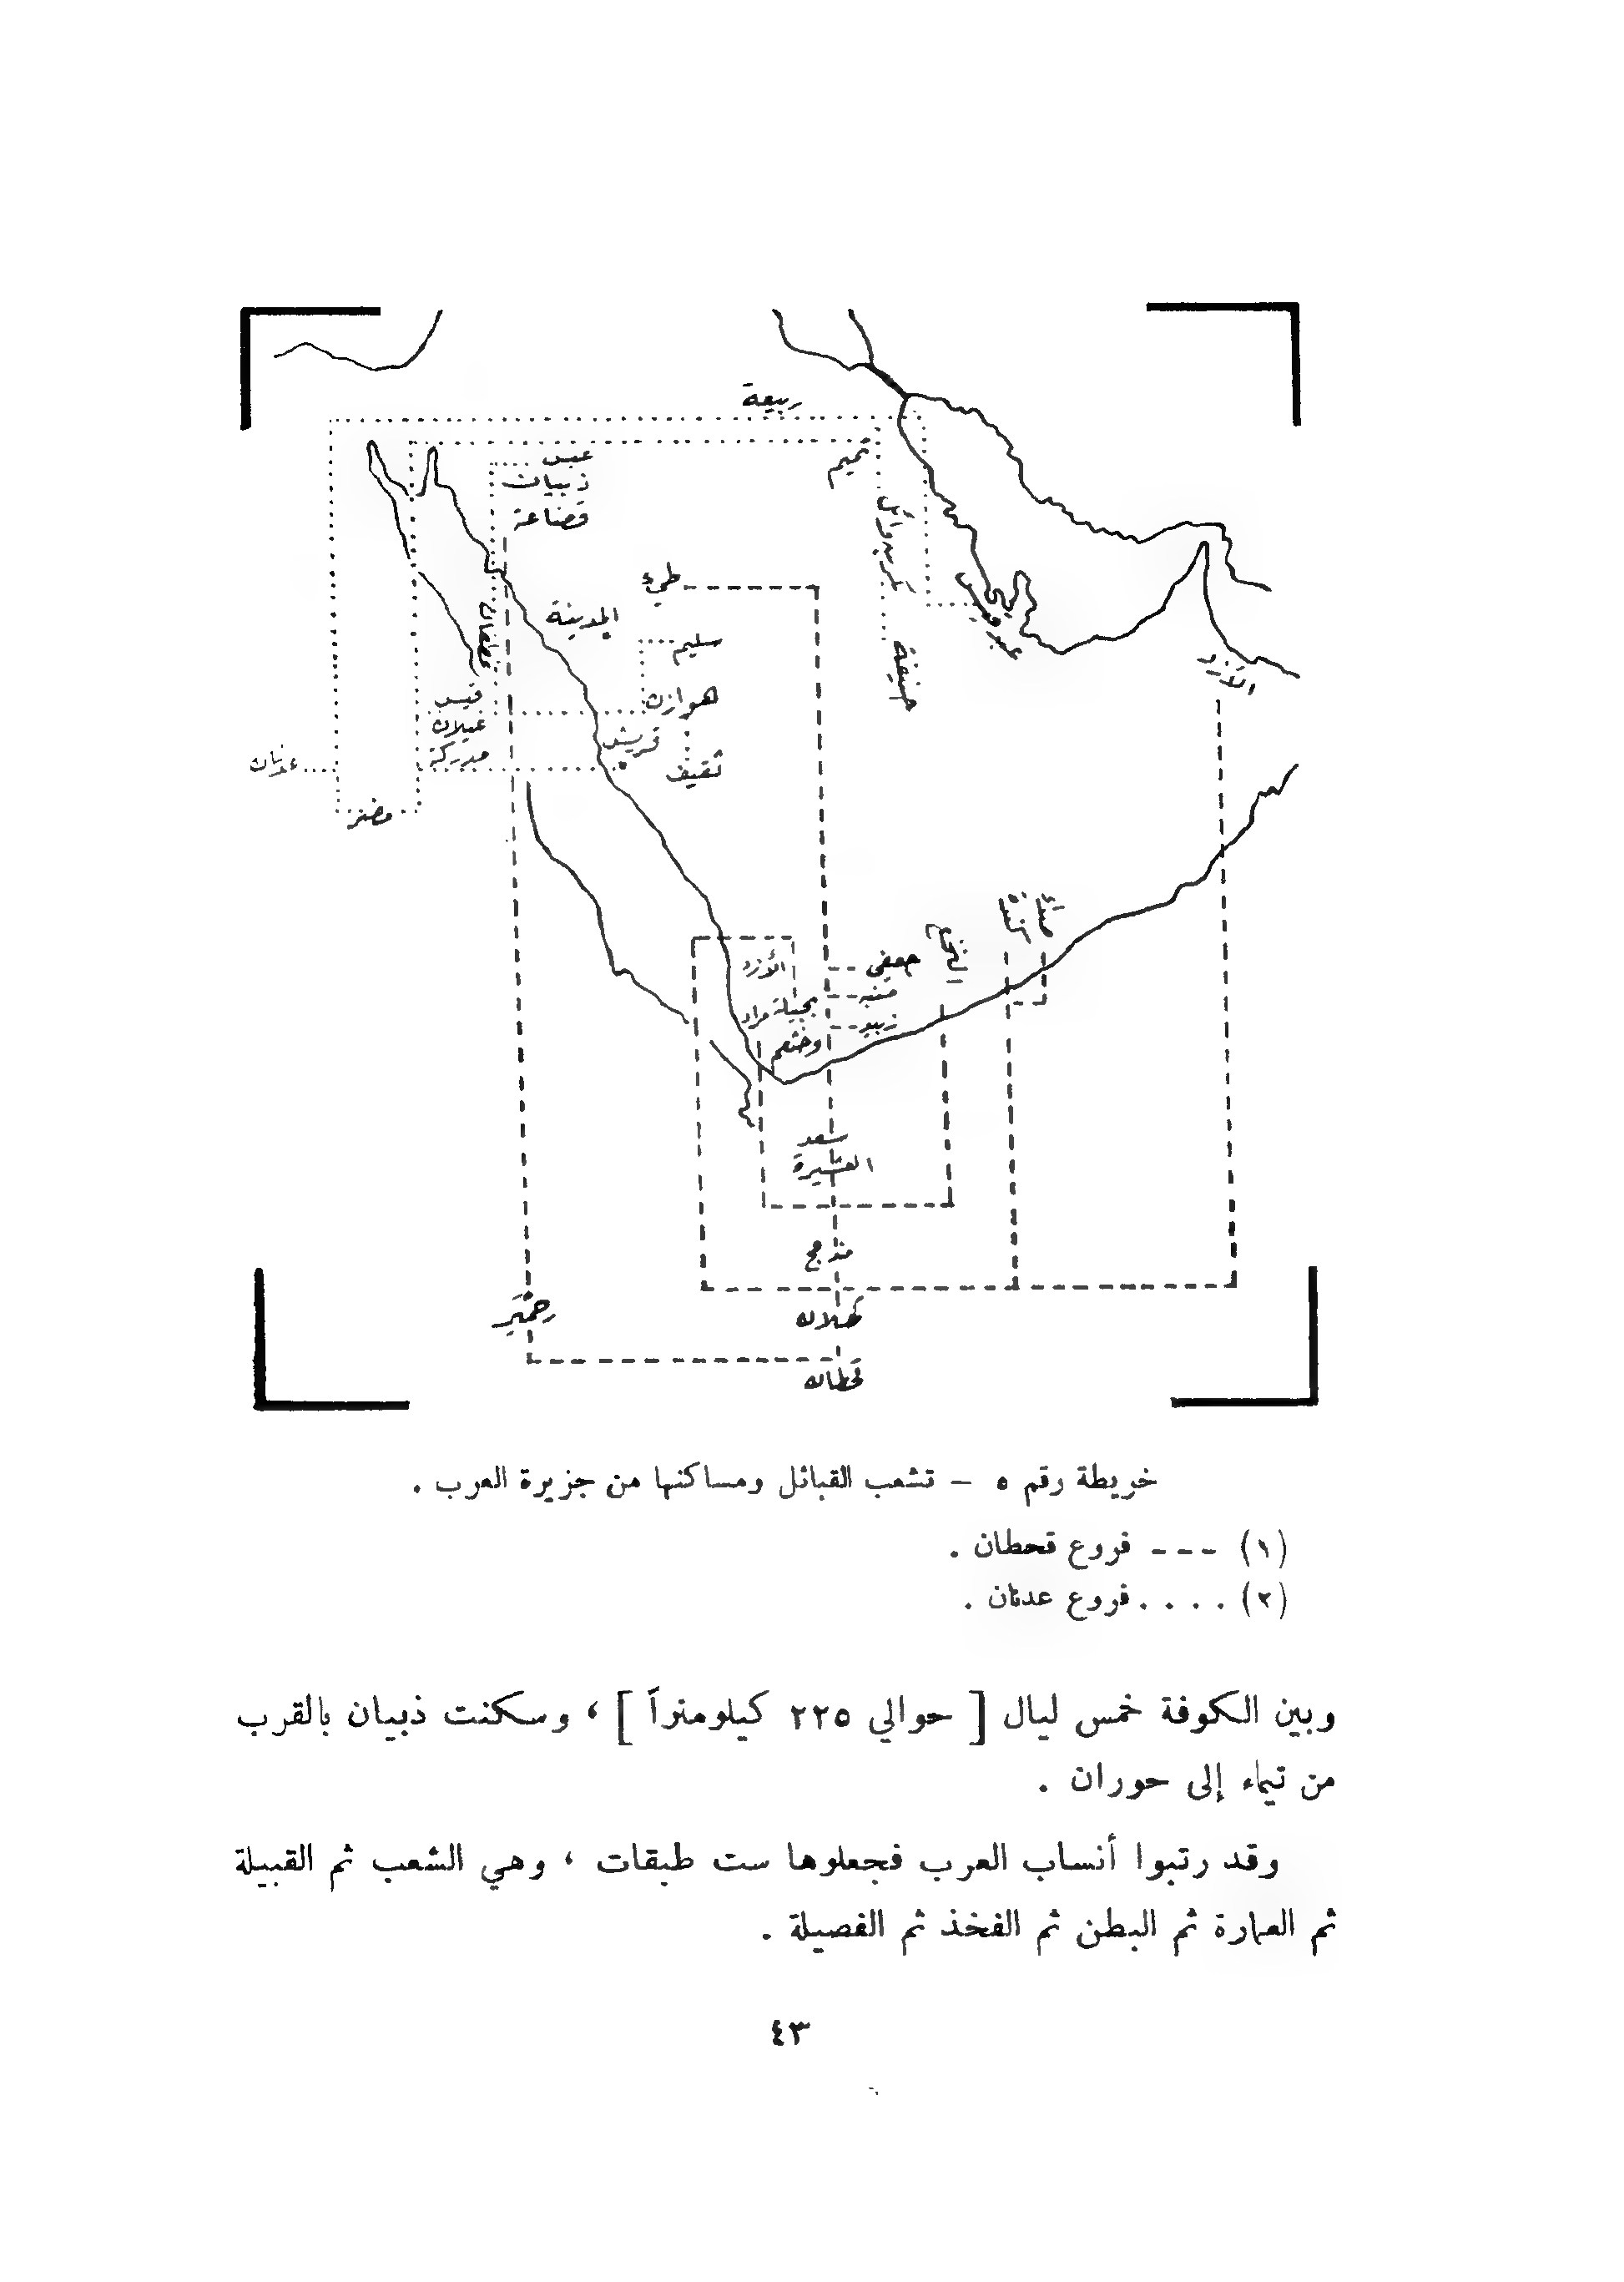 ربيعة
عبس
ذبيان
قضاعة
تميم
بكر بن وائل
طيء
المدينة
غطفان
سليم
عبد قيس
حنيفة
الأزد
هوازن
قيس
عيلان
قريش
مدركة
ثقيف
عدنان
مضر
صداء
كندة
النخع
جعفي
الأزد
منبه
بجيلة
مراد
زبيد
وخثعم
سعد
العشيرة
مذحج
حمير
كهلان
قحطان
خريطة رقم ٥ – تشعب القبائل ومساكنها من جزيرة العرب .
(١) – – – فروع قحطان .
(٢) . . . . فروع عدنان .
وبين الكوفة خمس ليال [ حوالي ٢٢٥ كيلومتراً ] ، وسكنت ذبيان بالقرب
من تيماء إلى حوران .
وقد رتبوا أنساب العرب فجعلوها ست طبقات ، وهي الشعب ثم القبيلة
ثم العمارة ثم البطن ثم الفخذ ثم الفصيلة .
٤٣